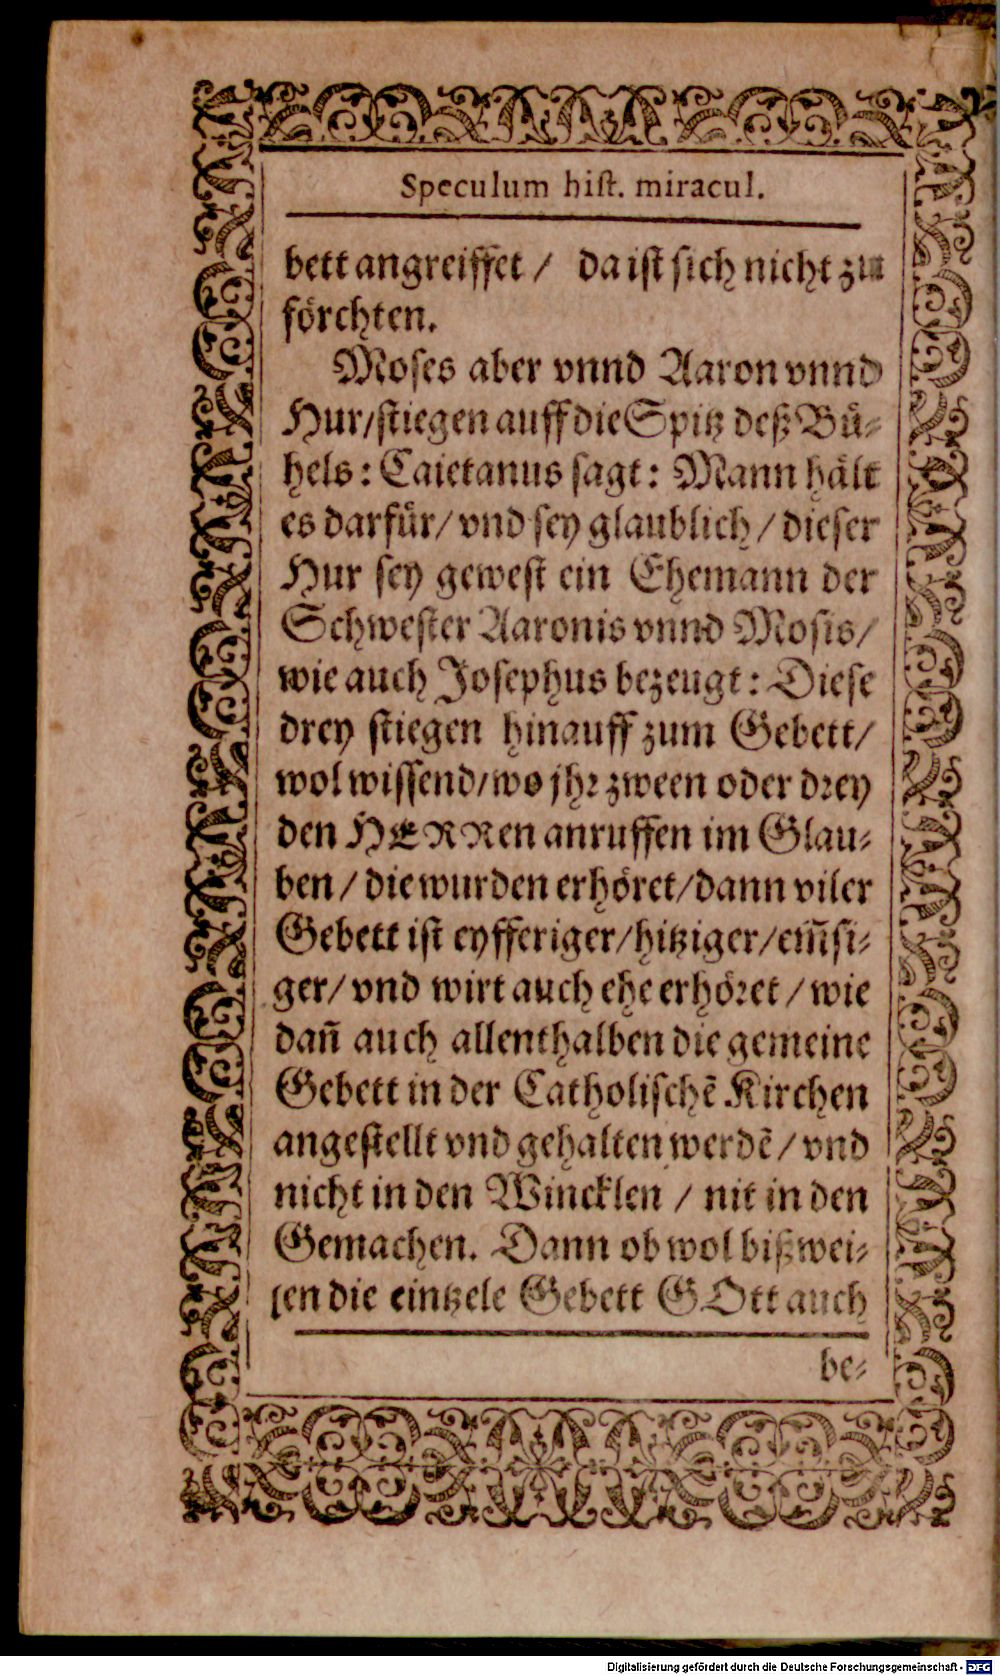 Speculum hiſt. miracul.
bett angreiffet / da iſt ſich nicht zu
förchten.
Moſes aber vnnd Aaron vnnd
Hur/ſtiegen auff die Spitz deß Buͤ⸗
hels: Caietanus ſagt: Mann haͤlt
es darfuͤr/ vnd ſey glaublich / dieſer
Hur ſey geweſt ein Ehemann der
Schweſter Aaronis vnnd Moſis/
wie auch Joſephus bezeugt: Dieſe
drey ſtiegen hinauff zum Gebett/
wol wiſſend/wo jhꝛ zween oder dꝛey
den HERRen anruffen im Glau⸗
ben / die wurden erhoͤret/dann viler
Gebett iſt eyfferiger/hitziger/em̃ſi⸗
ger/ vnd wirt auch ehe erhoͤꝛet / wie
dañ auch allenthalben die gemeine
Gebett in der Catholiſchẽ Kirchen
angeſtellt vnd gehalten werdẽ / vnd
nicht in den Wincklen / nit in den
Gemachen. Dann ob wol bißwei⸗
len die eintzele Gebett GOtt auch
be⸗
Digitalisierung gefördert durch die Deutsche Forschungsgemeinschaft - DFG